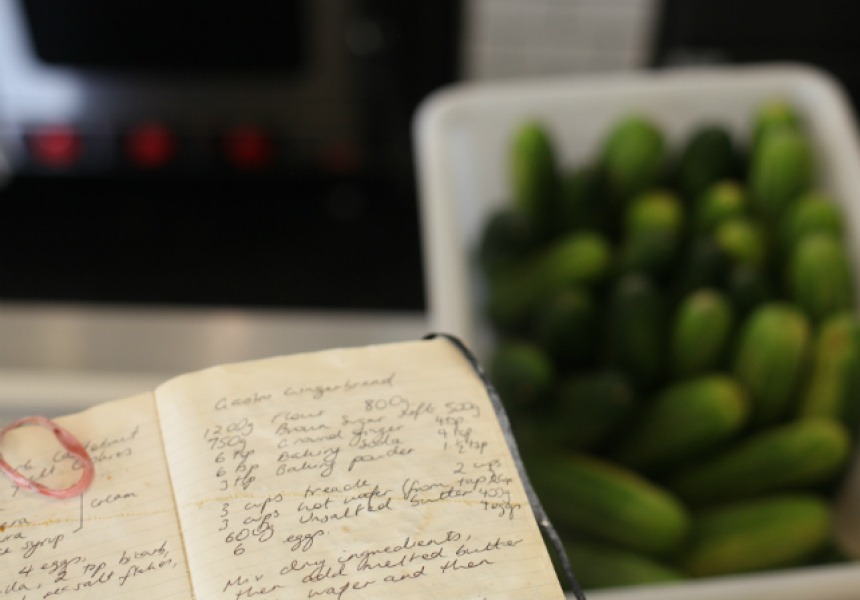 4 eggs,
2 tsp bicarb,
salt flakes,
syrup
cream
Gingerbread
1200g Flour 800g
750g Brown Sugar Soft 500g
6 tsp Ground ginger 4tsp
6 tsp Baking Soda 4 tsp
3 tsp Baking powder 1.½ tsp
3 cups treacle 2 cups
3 cups hot water (from tap)
600g Unsalted butter 400g
6 eggs. 4 eggs
Mix dry ingredients,
then add melted butter
water and then